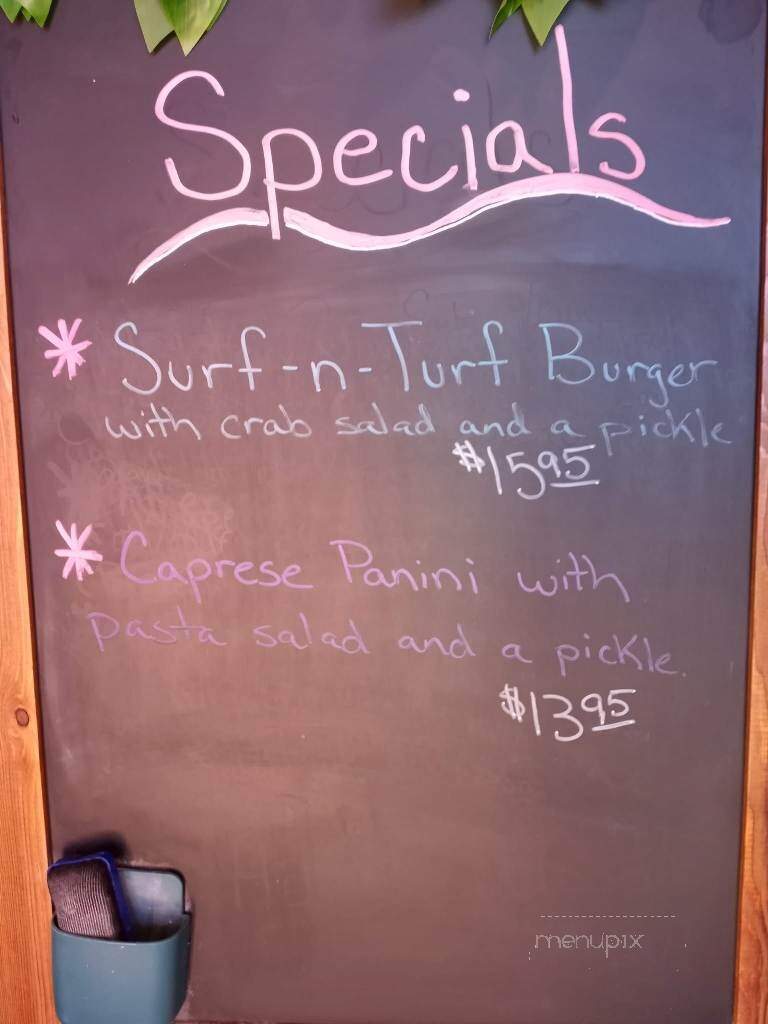 Specials
* Surf-n-Turf Burger
with crab salad and a pickle
$15.95
* Caprese Panini with
pasta salad and a pickle.
$13.95
menupix